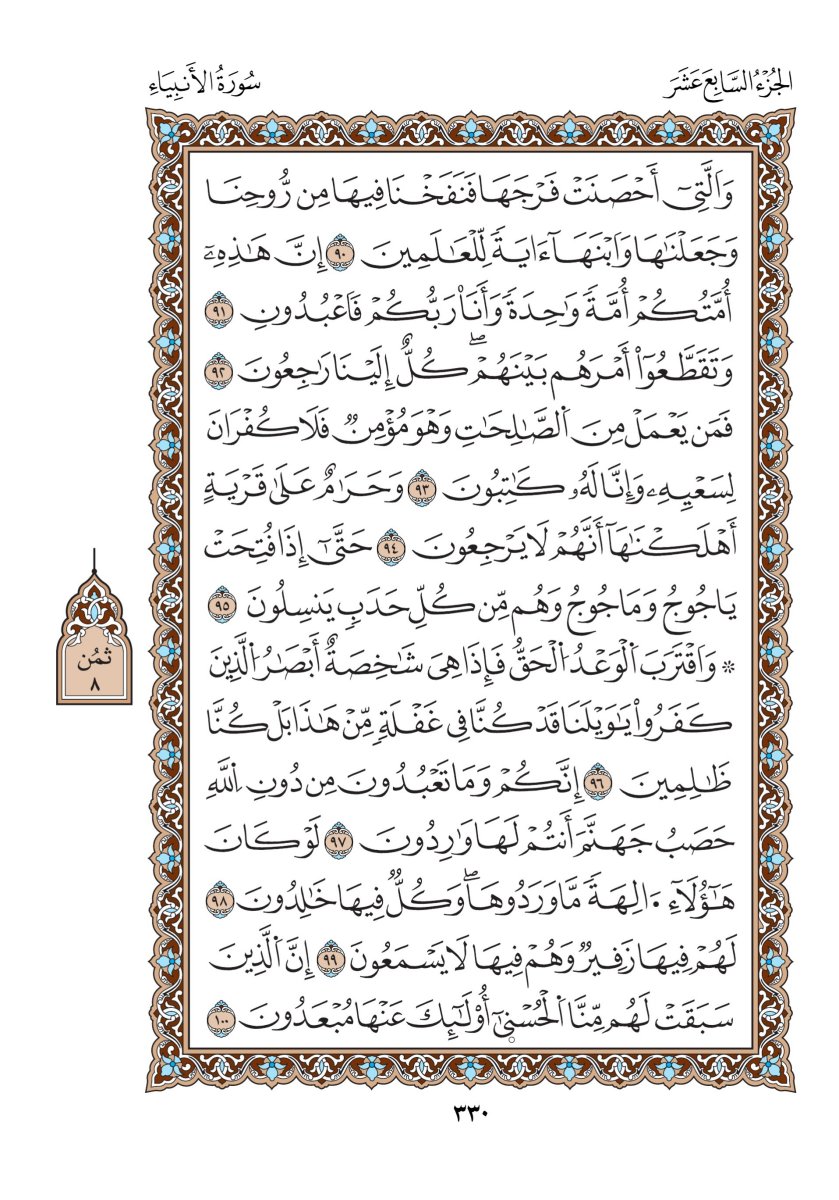 الجُزْءُ السَّابِعَ عَشَرَ
سُورَةُ الأَنبِيَاءِ
وَاَلَّتِےٓ أَحْصَنَتْ فَرْجَهَا فَنَفَخْنَا فِيهَا مِن رُّوحِنَا
وَجَعَلْنَٰهَا وَابْنَهَآ ءَايَةٗ لِّلْعَٰلَمِينَ ٩٠ إِنَّ هَٰذِهِۦٓ
أُمَّتُكُمْ أُمَّةٗ وَٰحِدَةٗ وَأَنَا۠ رَبُّكُمْ فَاعْبُدُونِ ٩١
وَتَقَطَّعُوٓاْ أَمْرَهُم بَيْنَهُمْۖ كُلٌّ إِلَيْنَا رَٰجِعُونَ ٩٢
فَمَن يَعْمَلْ مِنَ اَ۬لصَّٰلِحَٰتِ وَهْوَ مُؤْمِنٞ فَلَا كُفْرَانَ
لِسَعْيِهِۦ وَإِنَّا لَهُۥ كَٰتِبُونَ ٩٣ وَحَرَٰمٌ عَلَىٰ قَرْيَةٍ
أَهْلَكْنَٰهَآ أَنَّهُمْ لَا يَرْجِعُونَ ٩٤ حَتَّىٰٓ إِذَا فُتِحَتْ
يَاجُوجُ وَمَاجُوجُ وَهُم مِّن كُلِّ حَدَبٖ يَنسِلُونَ ٩٥
۞ وَاقْتَرَبَ اَ۬لْوَعْدُ اُ۬لْحَقُّ فَإِذَا هِيَ شَٰخِصَةٌ أَبْصَٰرُ اُ۬لذِينَ
كَفَرُواْ يَٰوَيْلَنَا قَدْ كُنَّا فِي غَفْلَةٖ مِّنْ هَٰذَا بَلْ كُنَّا
ظَٰلِمِينَ ٩٦ إِنَّكُمْ وَمَا تَعْبُدُونَ مِن دُونِ اِ۬للَّهِ
حَصَبُ جَهَنَّمَ أَنتُمْ لَهَا وَٰرِدُونَ ٩٧ لَوْ كَانَ
هَٰٓؤُلَآءِ ءَالِهَةٗ مَّا وَرَدُوهَاۖ وَكُلّٞ فِيهَا خَٰلِدُونَ ٩٨
لَهُمْ فِيهَا زَفِيرٞ وَهُمْ فِيهَا لَا يَسْمَعُونَ ٩٩ إِنَّ اَ۬لذِينَ
سَبَقَتْ لَهُم مِّنَّا اَ۬لْحُسْنَىٰٓ أُوْلَٰٓئِكَ عَنْهَا مُبْعَدُونَ ١٠٠
ثُمُن
٨
٣٣٠